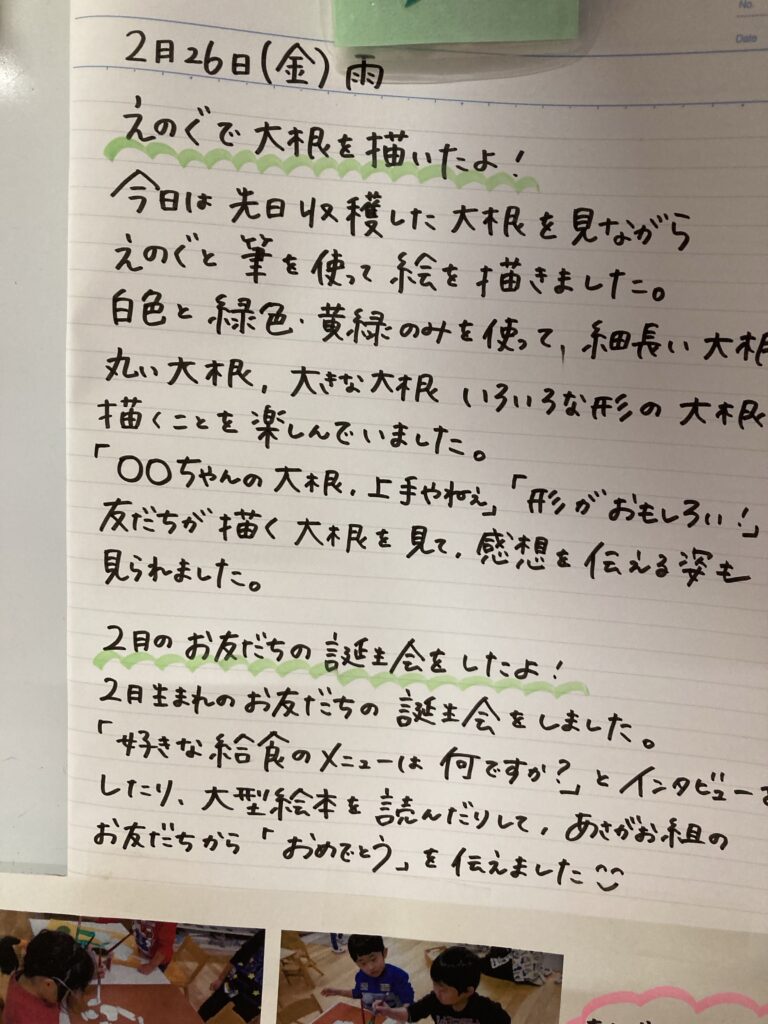 No.
Date
2月26日(金) 雨
えのぐで大根を描いたよ!
今日は先日収穫した大根を見ながら
えのぐと筆を使って絵を描きました。
白色と緑色・黄緑のみを使って、細長い大根
丸い大根、大きな大根 いろいろな形の大根
描くことを楽しんでいました。
「〇〇ちゃんの大根、上手やねぇ」「形がおもしろい!」
友だちが描く大根を見て、感想を伝える姿も
見られました。
2月のお友だちの誕生会をしたよ!
2月生まれのお友だちの誕生会をしました。
「好きな給食のメニューは何ですか?」とインタビューを
したり、大型絵本を読んだりして、あさがお組の
お友だちから「おめでとう」を伝えました